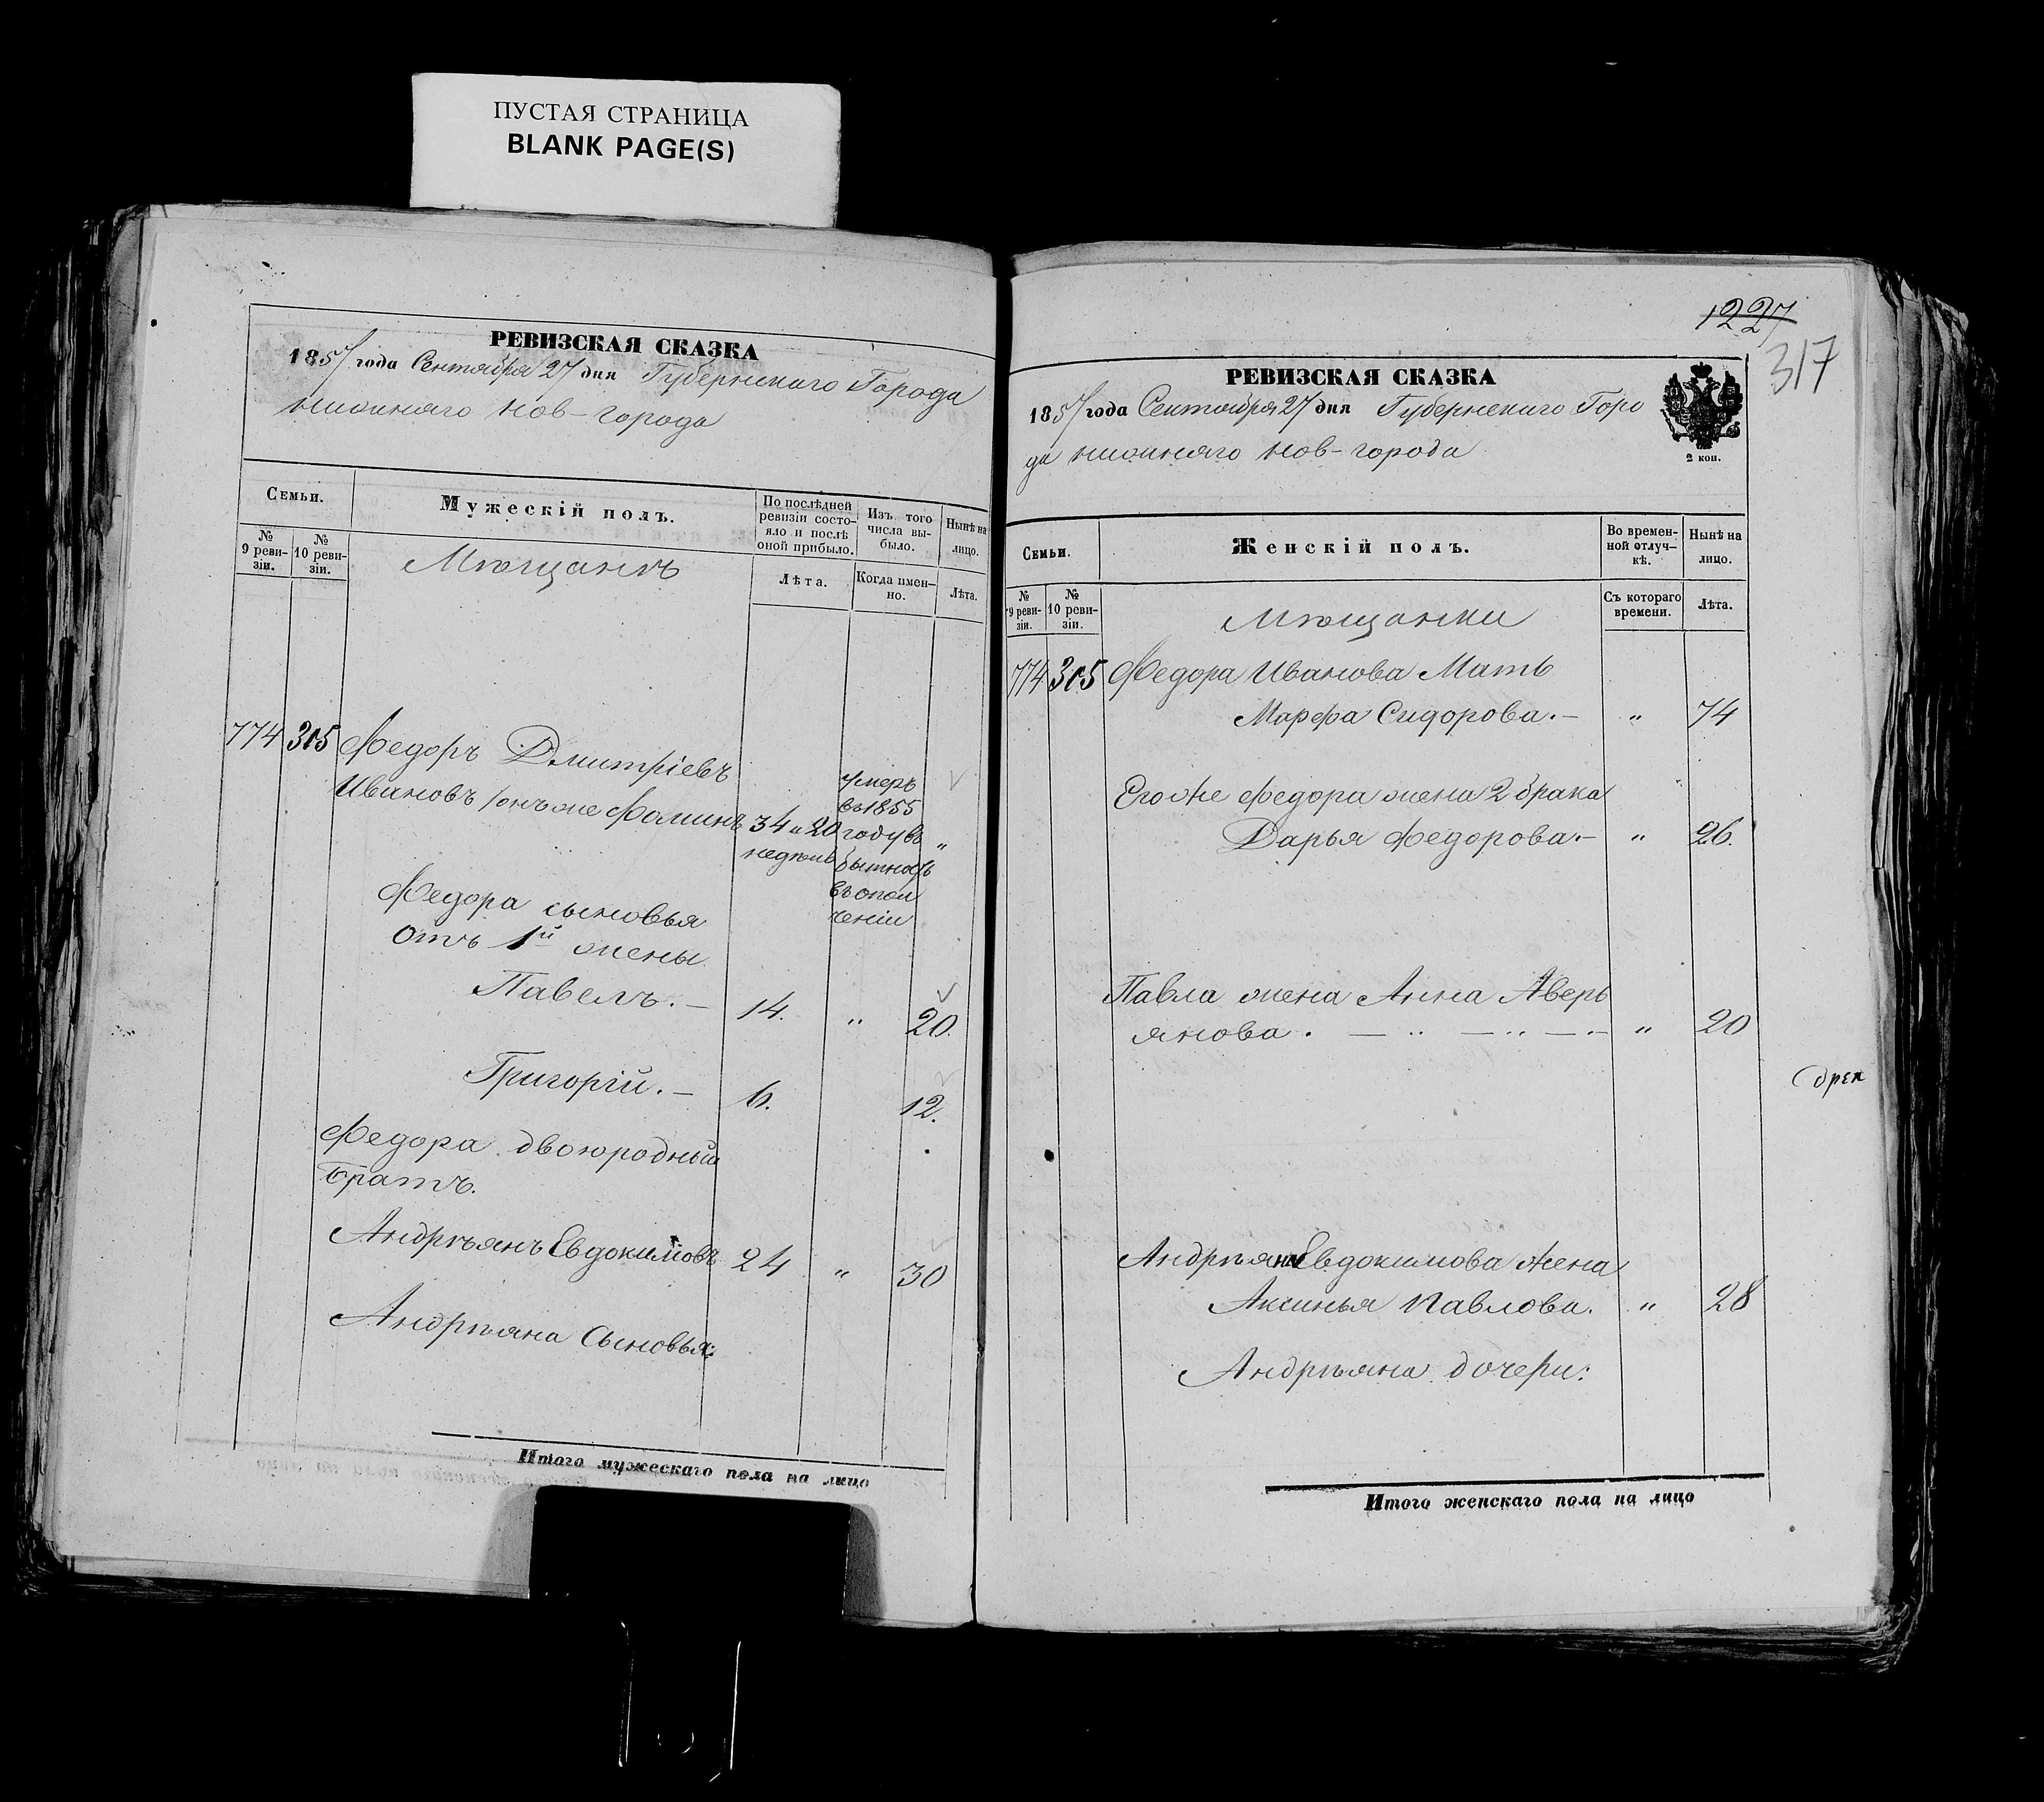 ПУСТАЯ СТРАНИЦА
BLANK PAGE(S)
РЕВИЗСКАЯ СКАЗКА
1857 года Сентября 27 дня Губернскаго Города
нижняго нов-города
Семьи.
Мужескій полъ.
По послѣдней ревизіи состо-
яло и послѣ оной прибыло.
Изъ того числа вы-
было.
Нынѣ на лицо.
№ 9 реви-
зіи.
№ 10 реви-
зіи.
Мѣщанъ
Лѣта.
Когда имен-
но.
Лѣта.
774 315 Федоръ Дмитріевъ
Ивановъ /онъ же Фоминъ 34 и 20 "
недѣль
умеръ
въ 1855
году въ
бытность
въ опол
ченіи
Федора сыновья
отъ 1й жены
Павелъ. — 14. " 20.
Григорій. — 6. 12.
Федора двоюродный
братъ.
Андрѣянъ Евдокимовъ 24 " 30
Андрѣяна Сыновья:
Итого мужескаго пола на лицо
1227
317
РЕВИЗСКАЯ СКАЗКА
1857 года Сентября 27 дня Губернскаго Горо
да нижняго нов-города
2 коп.
Семьи.
Женскій полъ.
Во времен-
ной отлуч-
кѣ.
Нынѣ на лицо.
№ 9 реви-
зіи.
№ 10 реви-
зіи.
Мѣщанки
Съ котораго времени.
Лѣта.
774 315 Федора Иванова Мать
Марфа Сидорова. — " 74
Его же Федора жена 2 брака
Дарья Федорова. — " 26.
Павла жена Анна Аверь
янова. — " — " — " 20
Андрѣяна Евдокимова жена
Аксинья Павлова. " 28
Андрѣяна дочери:
Итого женскаго пола на лицо